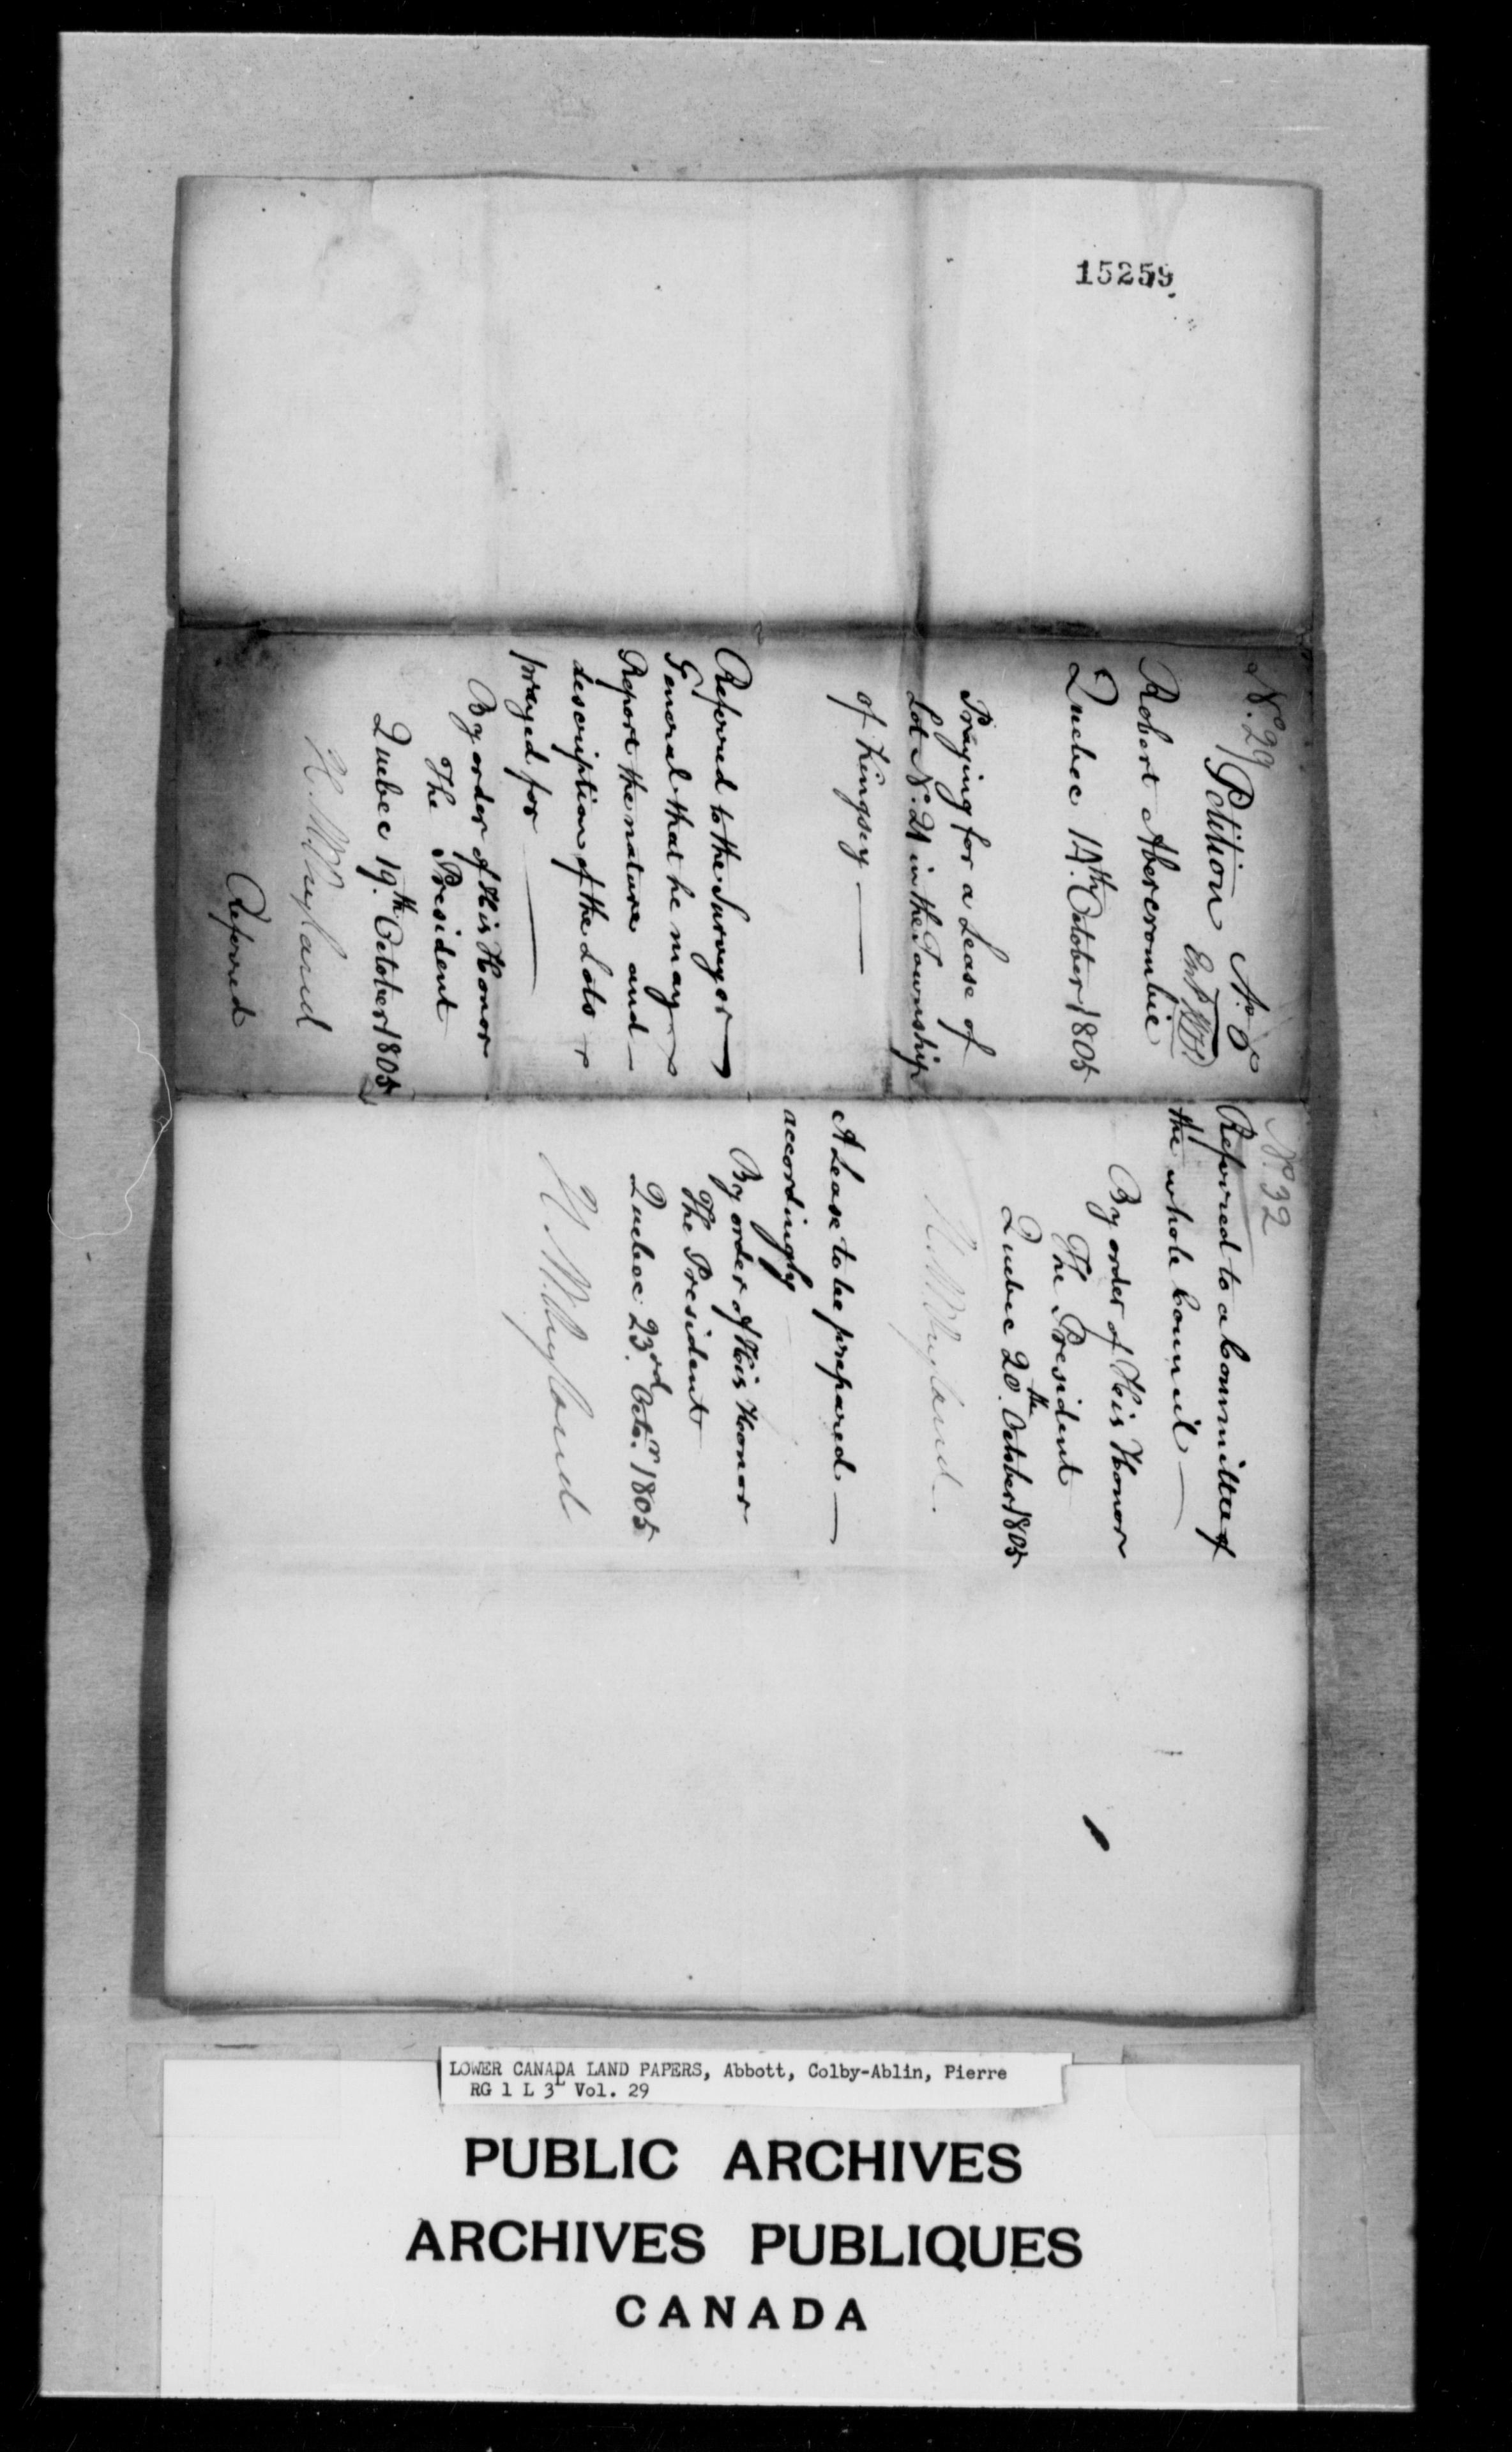 15259
No. 29 Petition No. 6
Robert Abercrombie
Quebec 14th. October 1805
Praying for a Lease of
Lot No. 21 in the Township
of Kingsey —
Referred to the Surveyor —
General that he may —
Report the nature and —
description of the Lots
prayed for —
By order of His Honor
The President
Quebec 19th. October 1805
H. W. Ryland
Referred
No. 32
Referred to a Committee of
the whole Council —
By order of His Honor
The President
Quebec 20th. October 1805
H. W. Ryland.
A Lease to be prepared —
accordingly
By order of His Honor
The President
Quebec 23rd. Octor. 1805
H. W. Ryland
LOWER CANADA LAND PAPERS, Abbott, Colby-Ablin, Pierre
RG 1 L 3L Vol. 29
PUBLIC ARCHIVES
ARCHIVES PUBLIQUES
CANADA